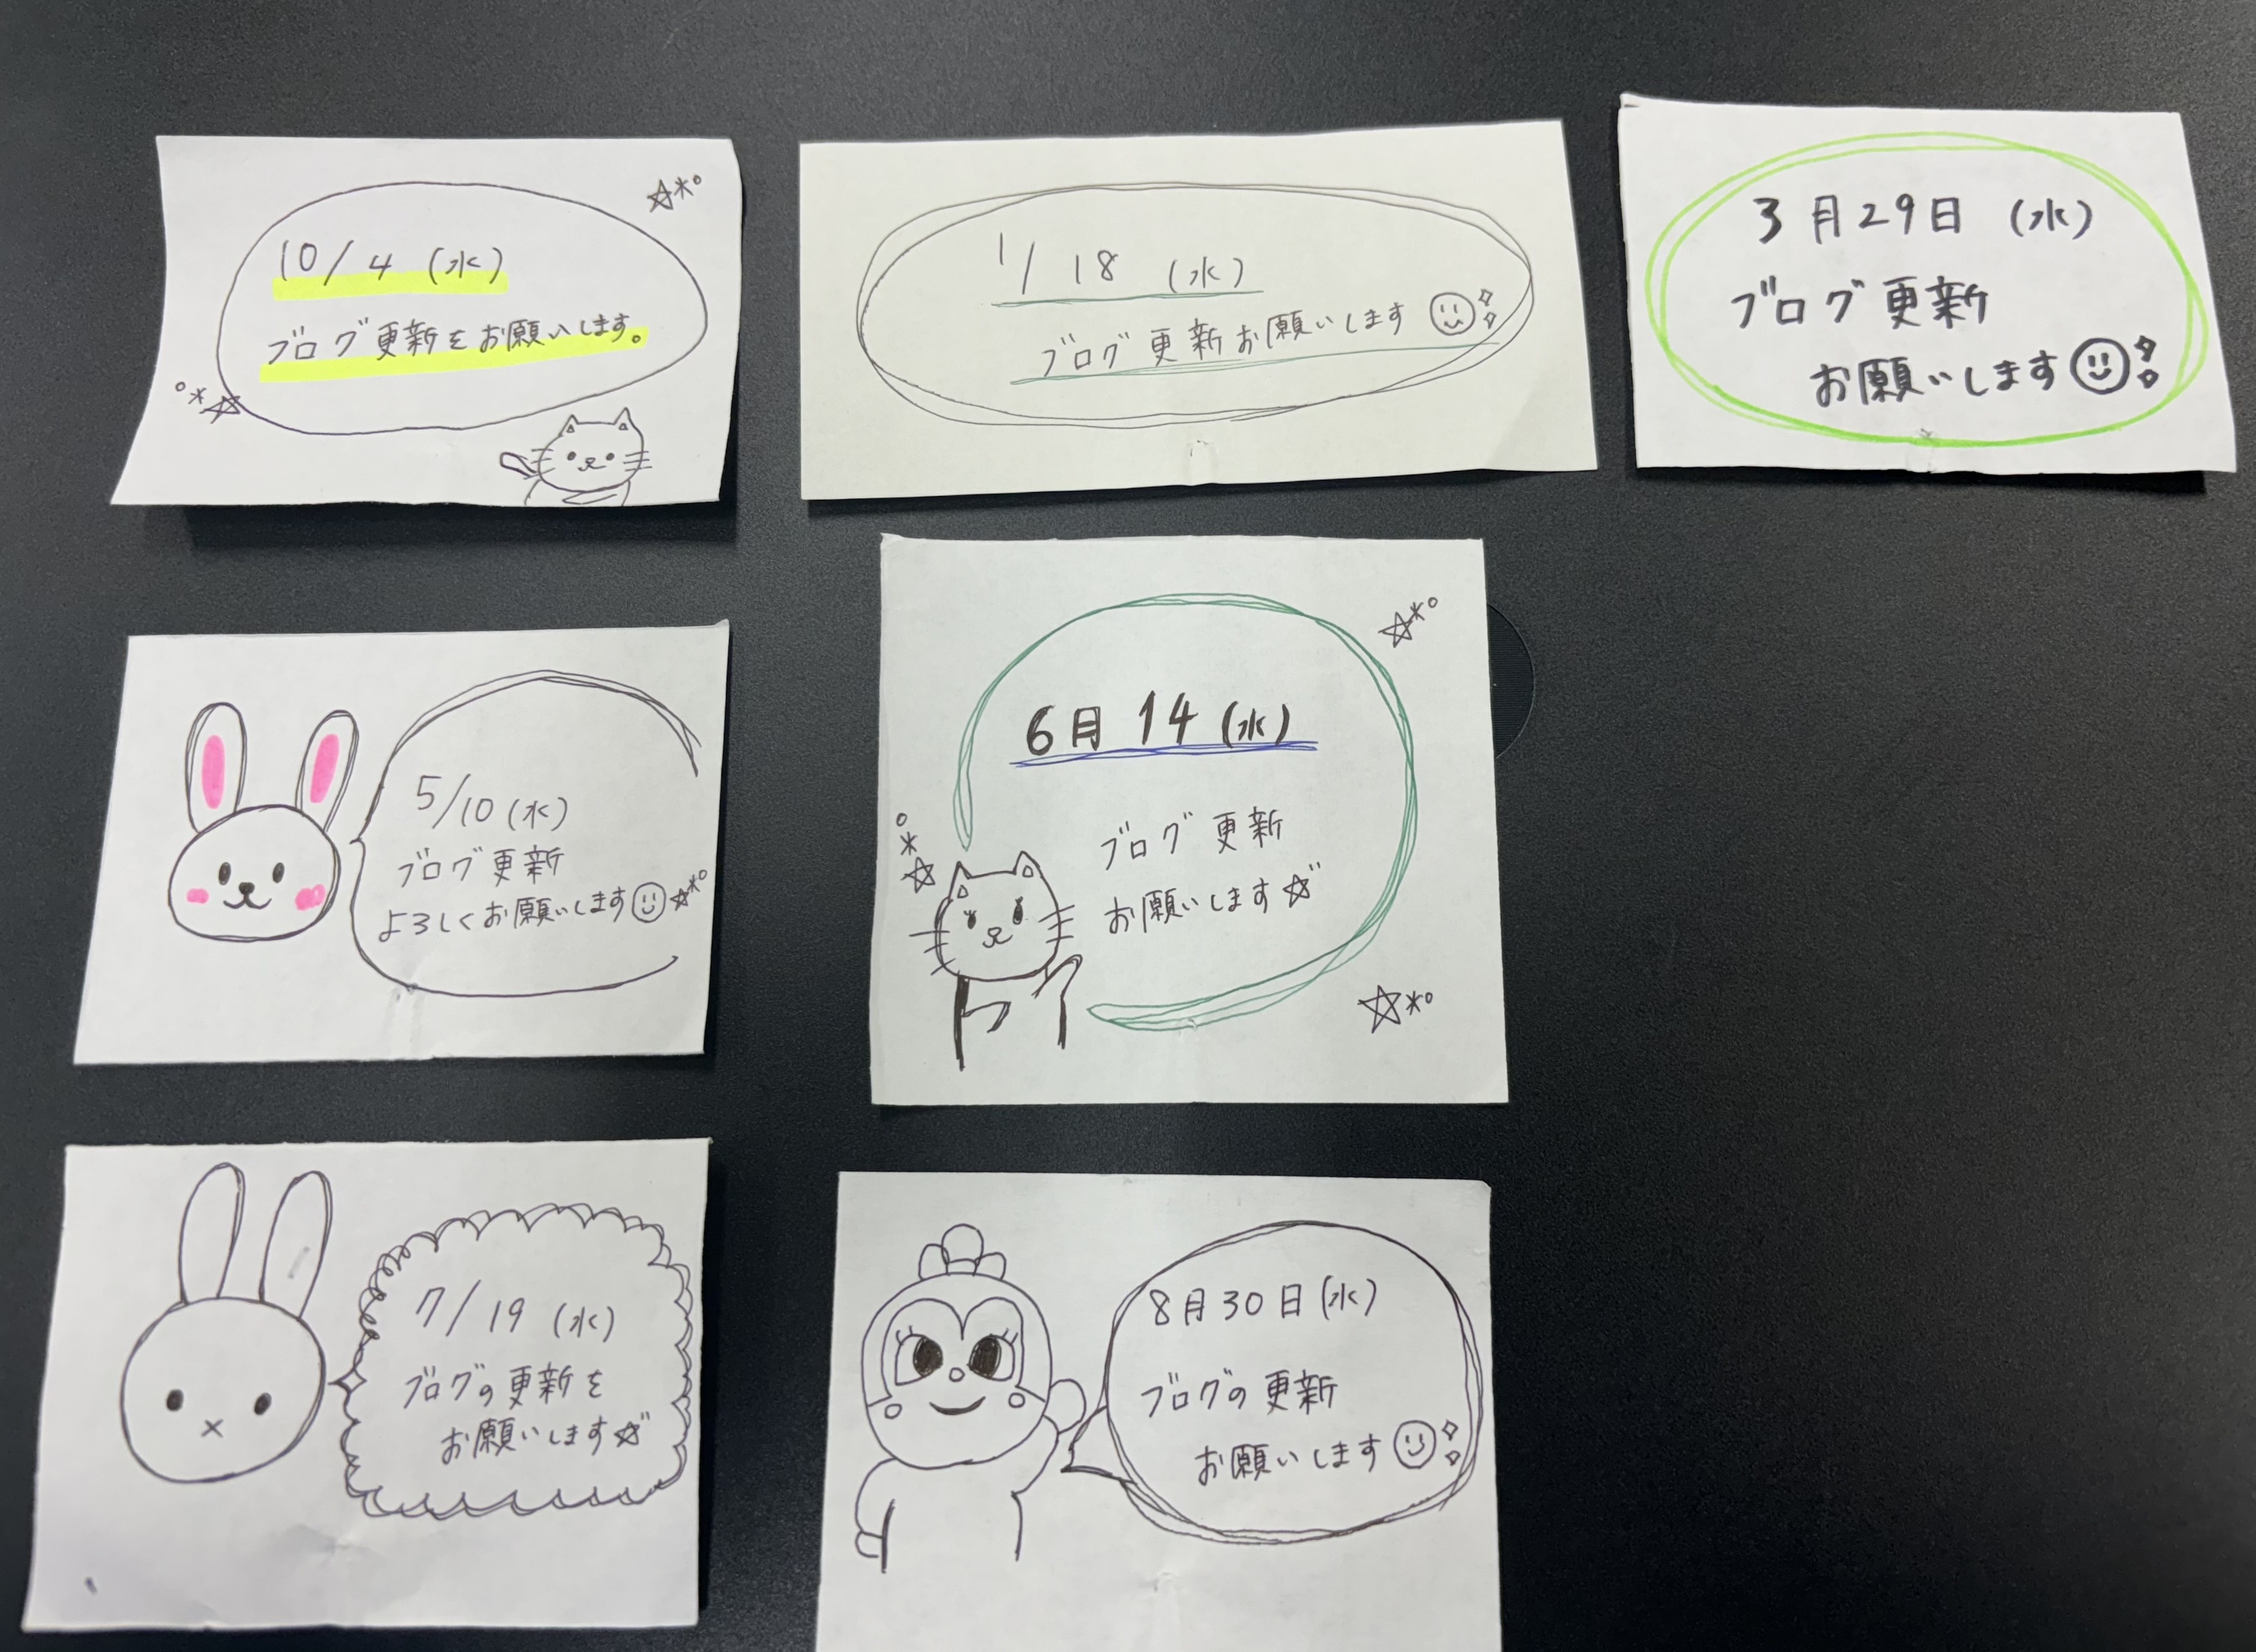 10/4 (水)
ブログ更新をお願いします。
1/18 (水)
ブログ更新お願いします
3月29日 (水)
ブログ更新
お願いします
5/10(水)
ブログ更新
よろしくお願いします
6月14(水)
ブログ更新
お願いします
7/19 (水)
ブログの更新を
お願いします
8月30日(水)
ブログの更新
お願いします